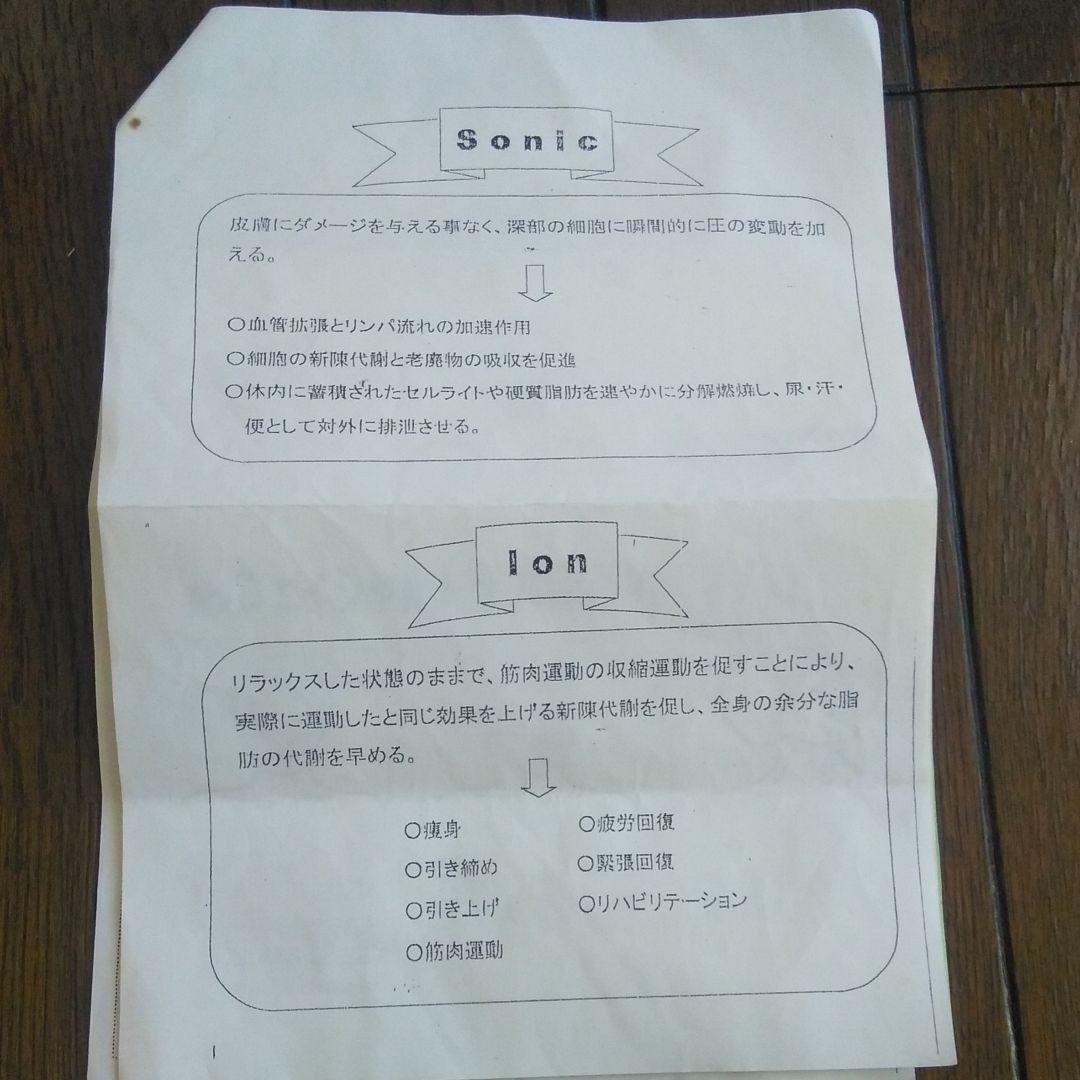 Sonic
皮膚にダメージを与える事なく、深部の細胞に瞬間的に圧の変動を加
える。
○血管拡張とリンパ流れの加速作用
○細胞の新陳代謝と老廃物の吸収を促進
○体内に蓄積されたセルライトや硬質脂肪を速やかに分解燃焼し、尿・汗・
便として対外に排泄させる。
Ion
リラックスした状態のままで、筋肉運動の収縮運動を促すことにより、
実際に運動したと同じ効果を上げる新陳代謝を促し、全身の余分な脂
肪の代謝を早める。
○痩身
○引き締め
○引き上げ
○筋肉運動
○疲労回復
○緊張回復
○リハビリテーション